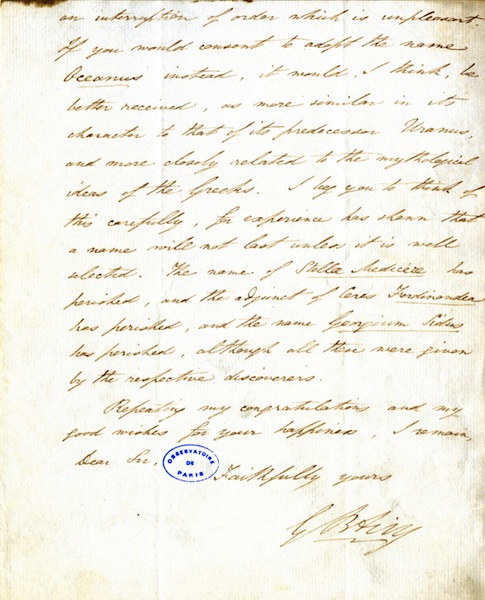 an interruption of order which is unpleasant.
If you would consent to adopt the name
Oceanus instead, it would, I think, be
better received, as more similar in its
character to that of its predecessor Uranus,
and more closely related to the mythological
ideas of the Greeks. I beg you to think of
this carefully, for experience has shewn that
a name will not last unless it is well
selected. The name of Stellæ Mediceæ has
perished, and the adjunct of Ceres Ferdinandea
has perished, and the name Georgium Sidus
has perished, although all these were given
by the respective discoverers.
Repeating my congratulations and my
good wishes for your happiness, I remain,
Dear Sir,
OBSERVATOIRE
DE
PARIS
Faithfully yours
G B Airy